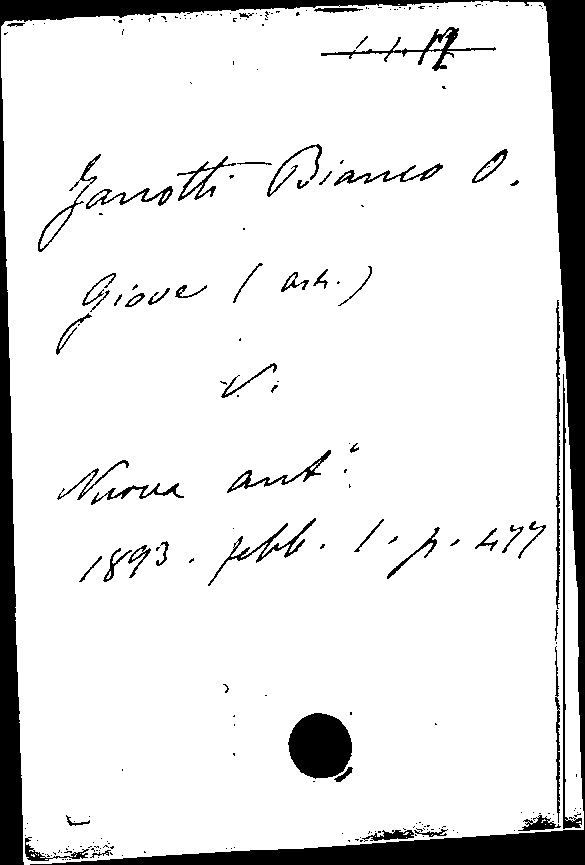 Zanotti Bianco O.
Giove (astr.)
V.
Nuova ant.ª
1893. febb. 1. p. 477